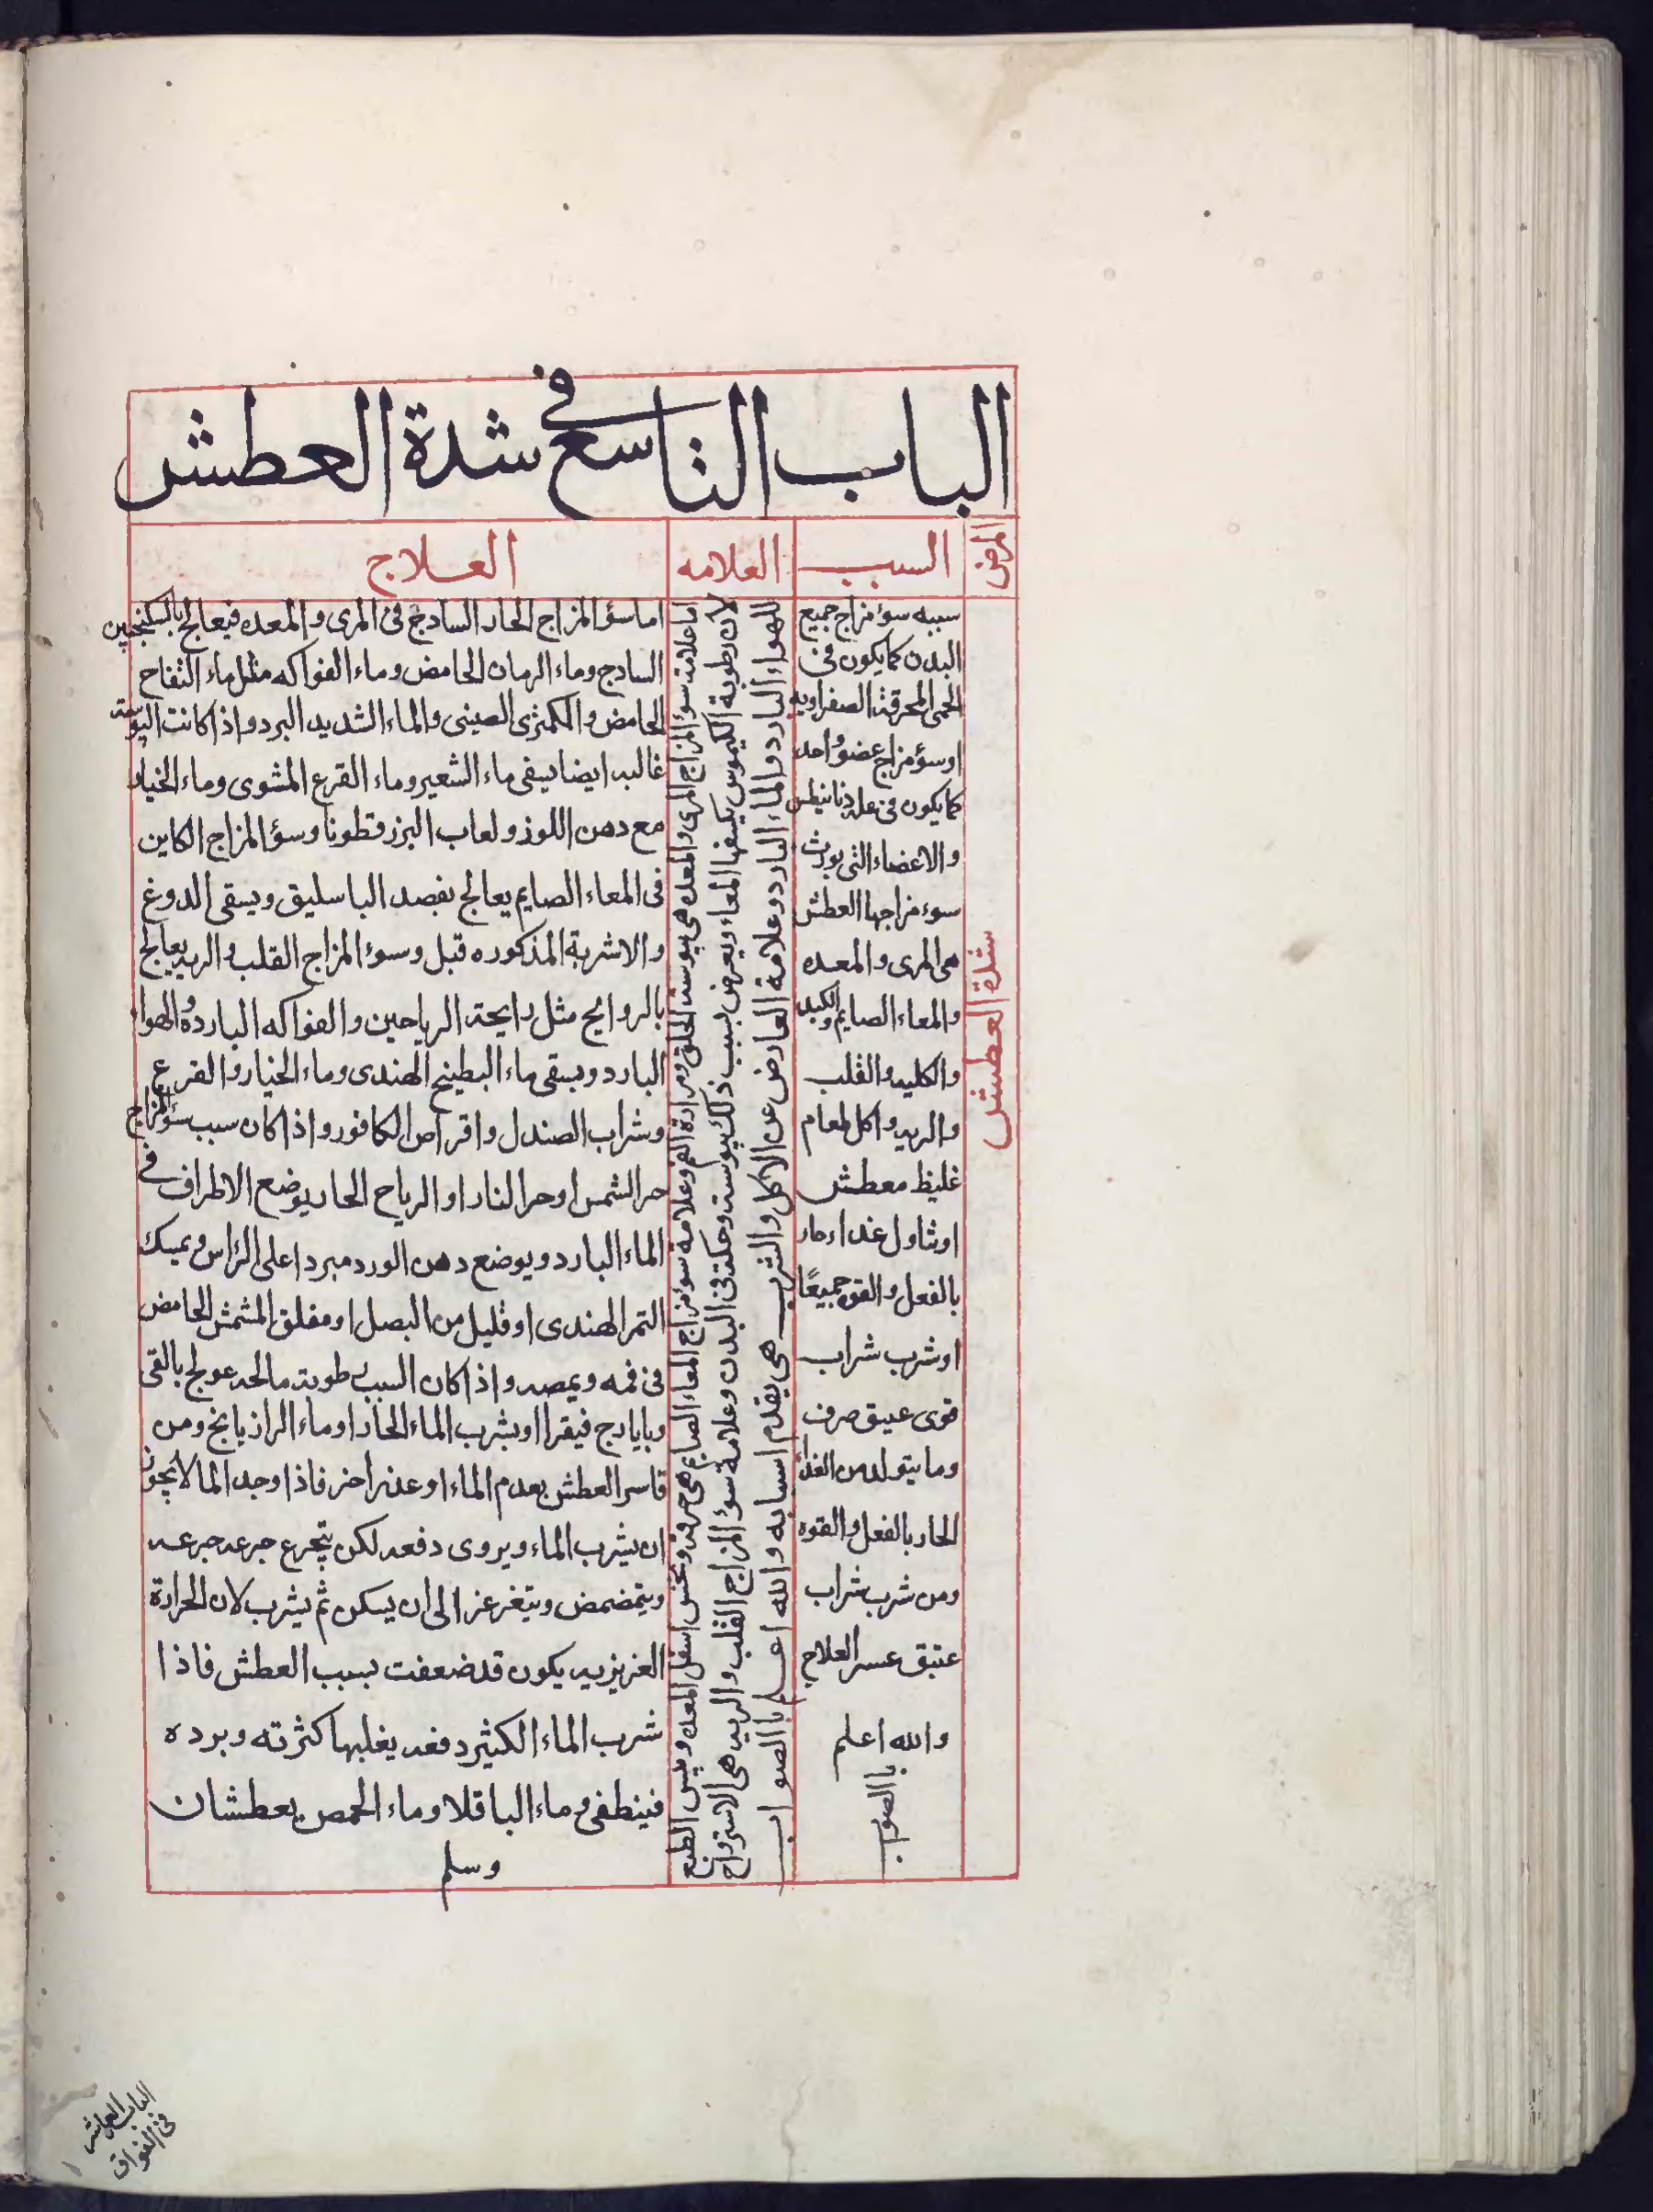 الباب التاسع في شدة العطش
المرض
السبب
العلامه
العلاج
شدة العطش
سببه سوء مزاج جميع
البدن كما يكون فى
الحمى المحرقة الصفراويه
اوسؤ مزاج عضو واحد
كما يكون فى علة ديانيطس
والاعضاء التى يورث
سوء مزاجها العطش
هى المرى والمعده
والمعاء الصايم والكبد
والكليه والقلب
والريه واكل طعام
غليظ معطش
اوتناول غداء حار
بالفعل والقوه جميعًا
اوشرب شراب
قوى عتيق صرف
وما يتولد من الغداء
الحار بالفعل والقوه
ومن شرب شراب
عتيق عسر العلاج
والله اعلم
با الصوب
اما علامت سؤ المزاج المرى والمعده هى يبوست الحلق ومرارة الفم وعلامه سوء مزاج المعاء الصايم هى حرقه ونخس اسفل المعده ويبس الطبع
لان رطوبة الكيموس ينشفها المعاء ويعرض بسبب ذلك يبوست وحكة فى البدن وعلامة سؤ المزاج القلب والريه هى الاسترواح
للهواء البارد والماء البارد وعلامة العارض عن الاكل والشرب هى تقدم اسبابه والله اعلم با الصواب
اما سؤ المزاج الحار السادج فى المرى والمعده فيعالج بالسكنجبين
السادج وماء الرمان الحامض وماء الفواكه مثل ماء التفاح
الحامض والكمثرى الصينى والماء الشديد البرد واذا كانت اليبوسة
غالبه ايضا يسقى ماء الشعير وماء القرع المشوى وماء الخيار
مع دهن اللوز ولعاب البزرقطونا وسؤ المزاج الكاين
فى المعاء الصايم يعالج بفصد الباسليق ويسقى الدوغ
والاشربة المذكوره قبل وسوء المزاج القلب والريه يعالج
بالروايح مثل رايحة الرياحين والفواكه البارده والهواء
البارد ويسقى ماء البطيخ الهندى وماء الخيار والقرع
وشراب الصندل واقراص الكافور واذا كان سبب سؤ المزاج
حر الشمس اوحر النار او الرياح الحار يوضع الاطراف في
الماء البارد ويوضع دهن الورد مبردا على الراس ويمسك
التمر الهندى اوقليل من البصل اومفلق المشمش الحامض
فى فمه ويمصه واذا كان السبب رطوبة مالحه عولج بالقى
وبايارج فيقرا اوبشرب الماء الحار اوماء الرازيانج ومن
قاسى العطش بعدم الماء اوعذر اخر فاذا وجد الما لا يجوز
ان يشرب الماء ويروى دفعه لكن يتجرع جرعه جرعه
ويتمضمض ويتغرغر الى ان يسكن ثم يشرب لان الحرارة
العزيزيه يكون قد ضعفت بسبب العطش فاذا
شرب الماء الكثير دفعه يغلبها كثرته وبرده
فينطفى وماء الباقلا وماء الحمص يعطشان
وسلم
الباب العاشر
فى الفواق